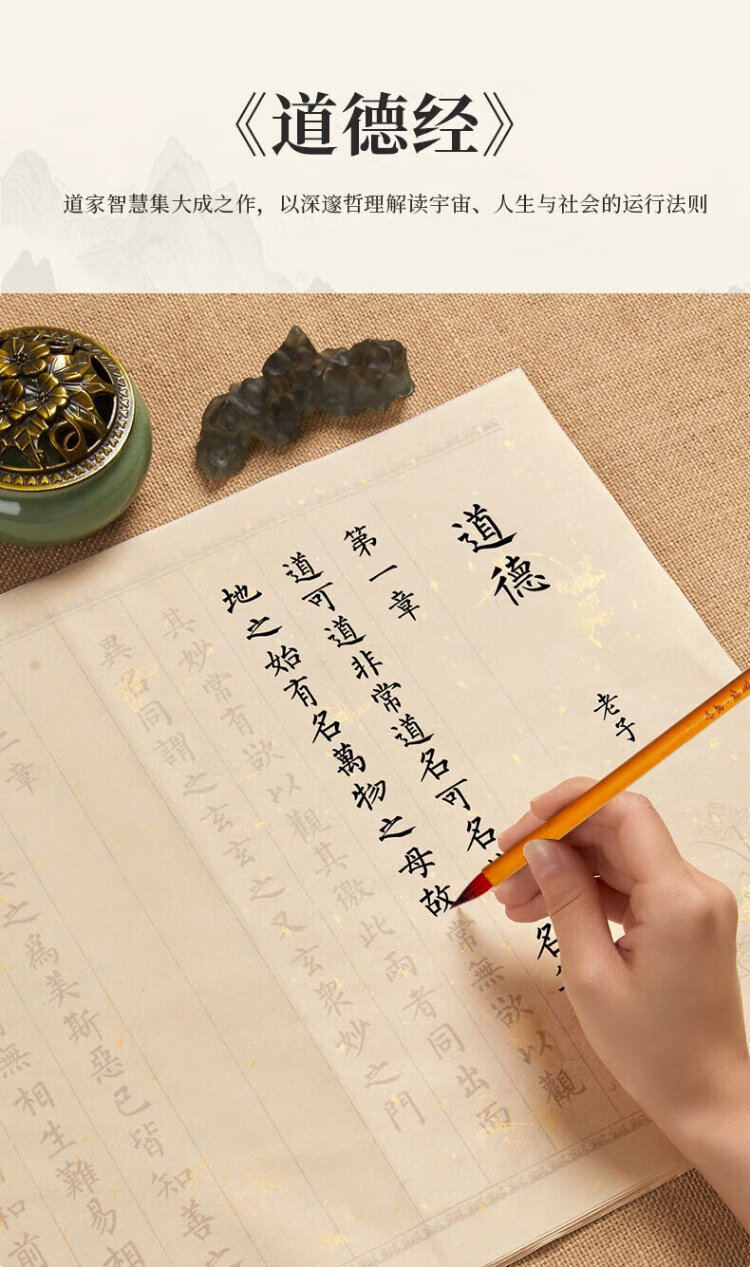 《道德经》
道家智慧集大成之作，以深邃哲理解读宇宙、人生与社会的运行法则
道德
老子
第一章
道可道非常道名可名名
地之始有名萬物之母故常無欲以觀
其妙常有欲以觀其徼此兩者同出而
異名同謂之玄玄之又玄衆妙之門
二章
之爲美斯惡已皆知善之
無相生難易相
和前